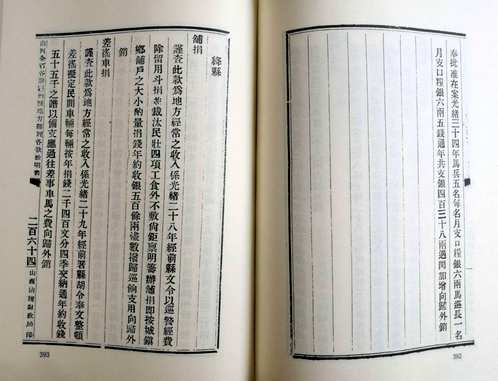 奉批准在案光緒三十四年馬兵五名每名月支口糧銀六兩馬巡長一名
月支口糧銀六兩五錢週年共支銀四百三十八兩遇閏加增向歸外銷
392
絳縣
舖捐
謹查此款為地方經常之收入係光緒二十八年經前縣文令以巡警經費
除留用斗捐並裁汰民壯四項工食外不敷尚鉅禀明籌辦舖捐即按城鎮
鄉舖戶之大小酌量捐錢年約收銀五百餘兩儘數撥歸巡餉支用向歸外
銷
差徭車捐
謹查此款為地方經常之收入係光緒二十九年經前署縣胡令奉文整頓
差徭擬定民間車輛每輛按年捐錢二千四百文分四季交納週年約收錢
五十五千之譜以備支應過往差事車馬之費向歸外銷
山西全省各府廳州縣地方經理各款說明書
二百六十四
393